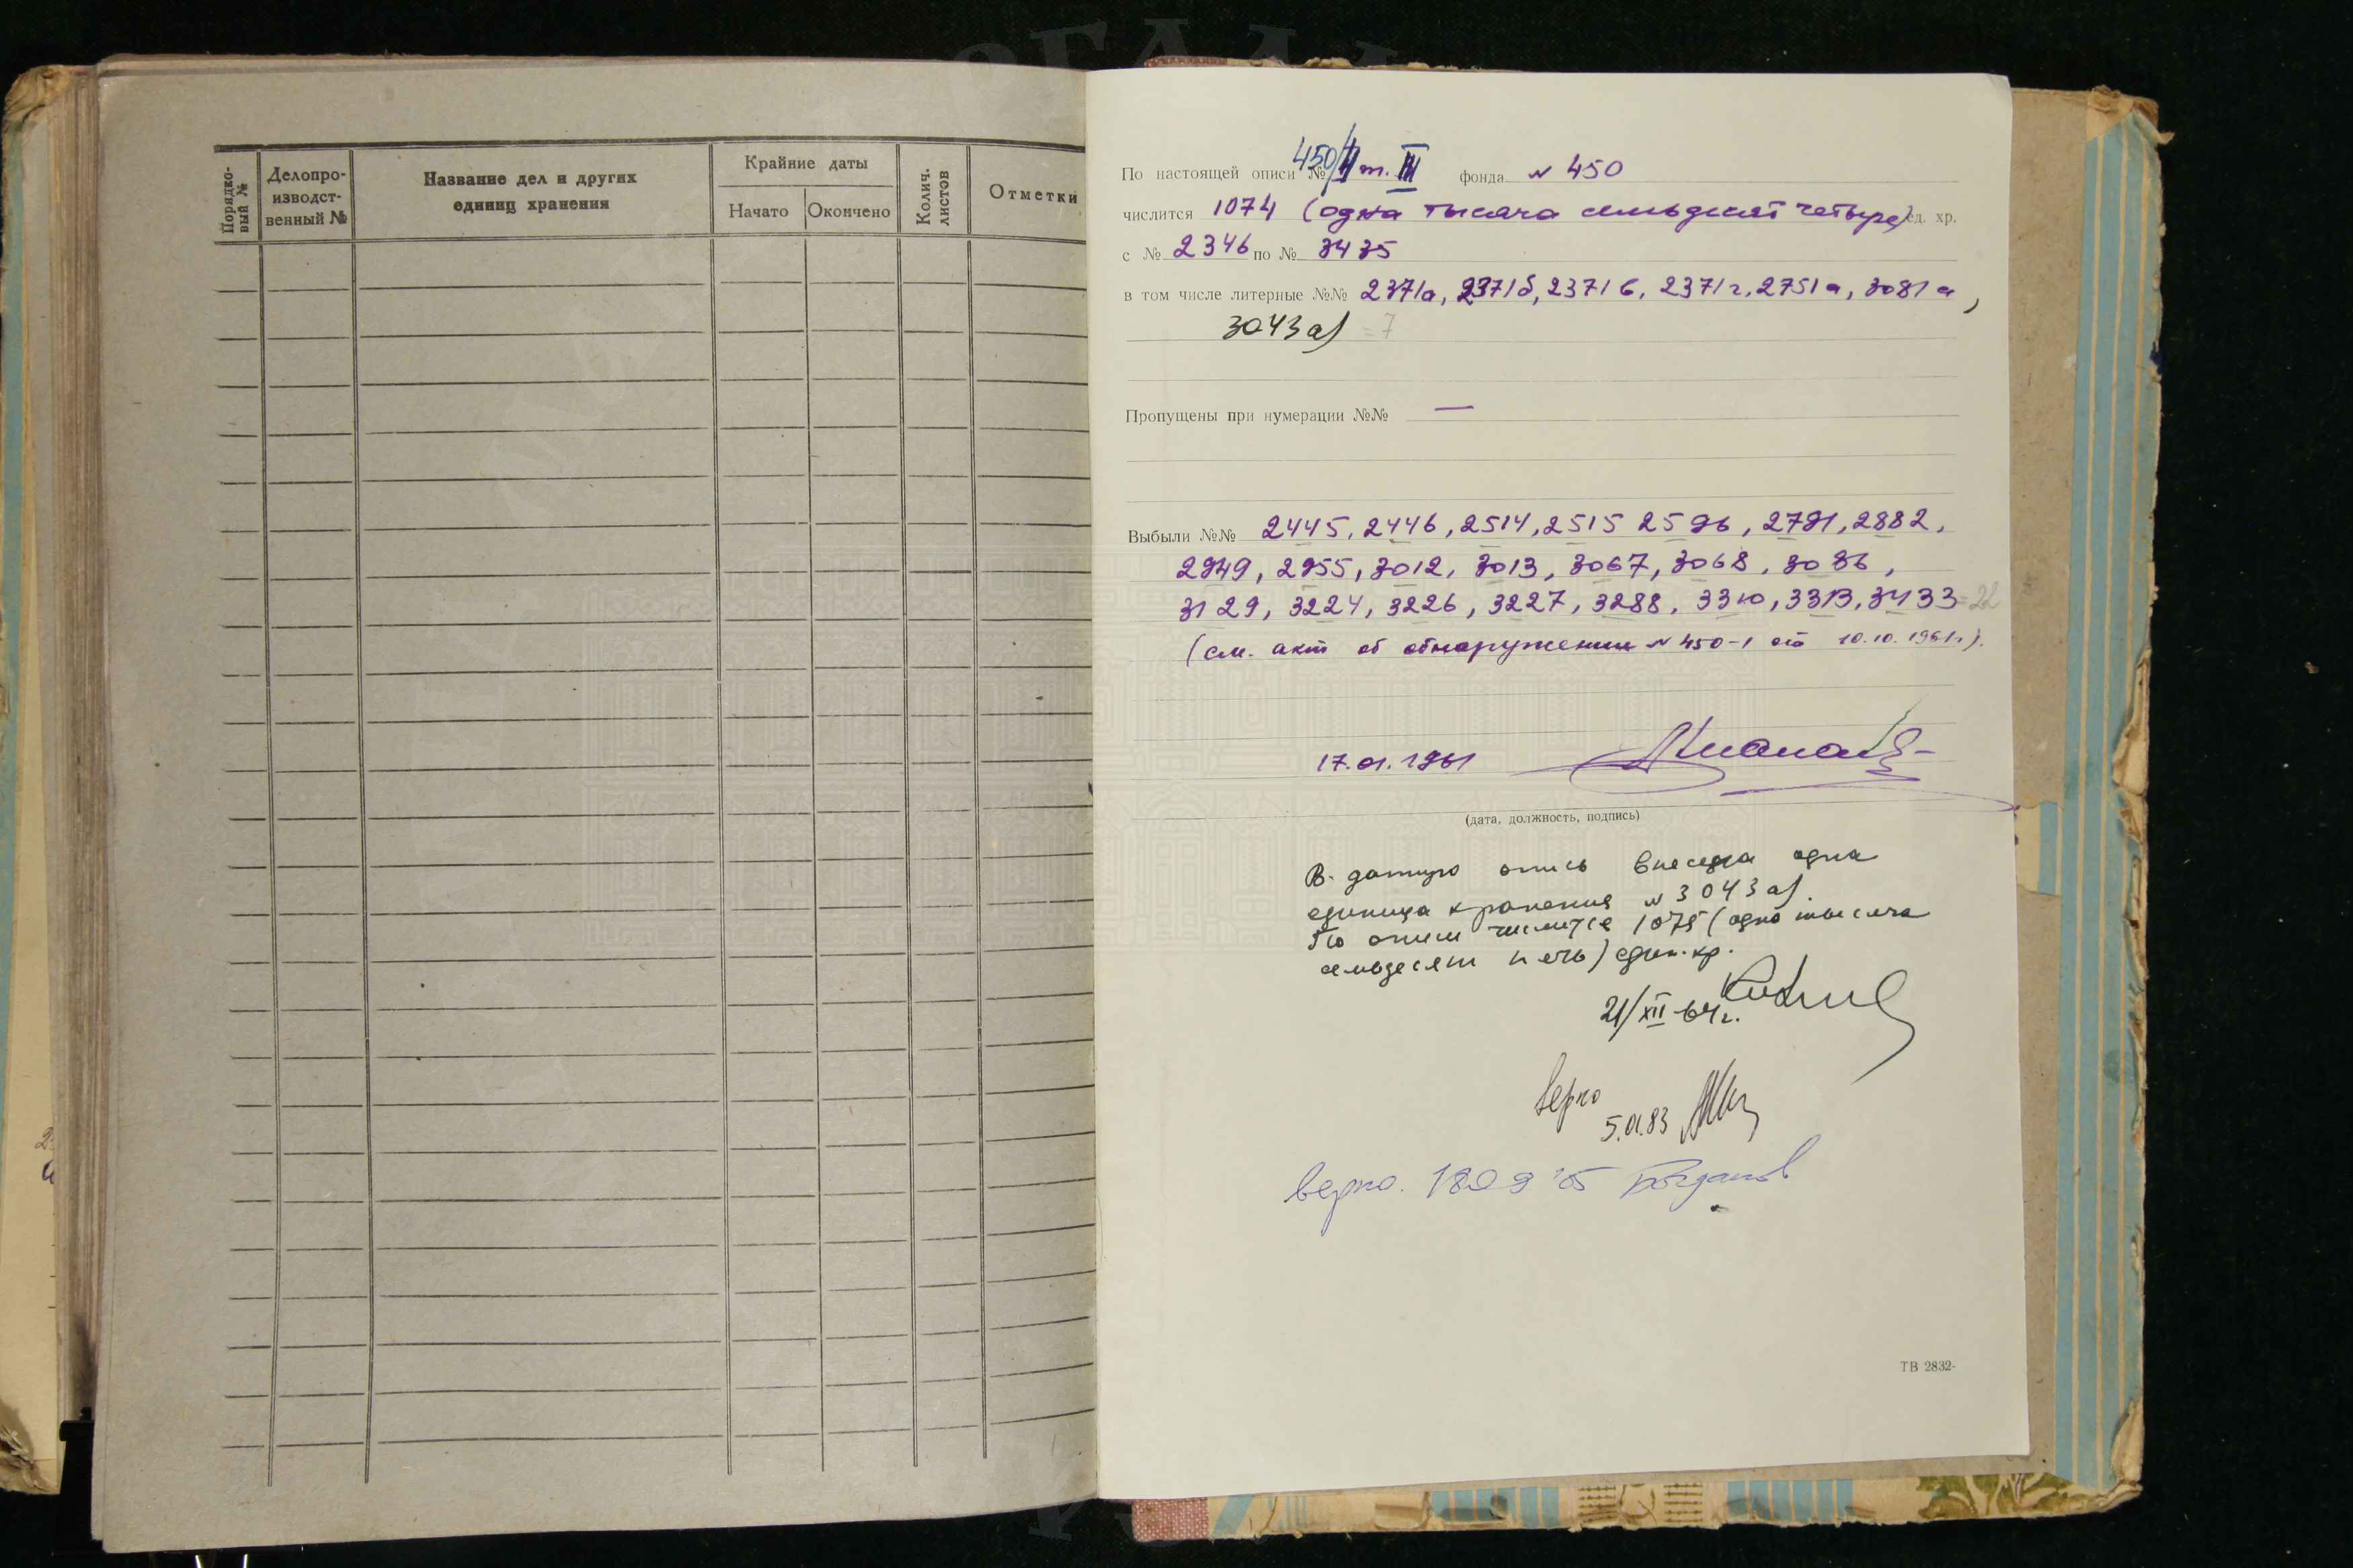 Порядко-
вый №
Делопро-
изводст-
венный №
Название дел и других
единиц хранения
Крайние даты
Начато
Окончено
Колич.
листов
Отметки
По настоящей описи № 450/II т. III фонда № 450
числится 1074 (одна тысяча семьдесят четыре) ед. хр.
с № 2346 по № 3435
в том числе литерные №№ 2371а, 2371б, 2371в, 2371г, 2751а, 3081а,
3043а) = 7
Пропущены при нумерации №№ —
Выбыли №№ 2445, 2446, 2514, 2515 2596, 2791, 2882,
2949, 2955, 3012, 3013, 3067, 3068, 3086,
3129, 3224, 3226, 3227, 3288, 3310, 3313, 3433 = 22
(см. акт об обнаружении № 450-1 от 10.10.1961г.).
17.01.1961
(дата, должность, подпись)
В данную опись внесена одна
единица хранения № 3043а).
По описи числится 1075 (одна тысяча
семьдесят пять) един. хр.
21/XII-64г.
Верно
5.01.83
Верно. Богданов
ТВ 2832-